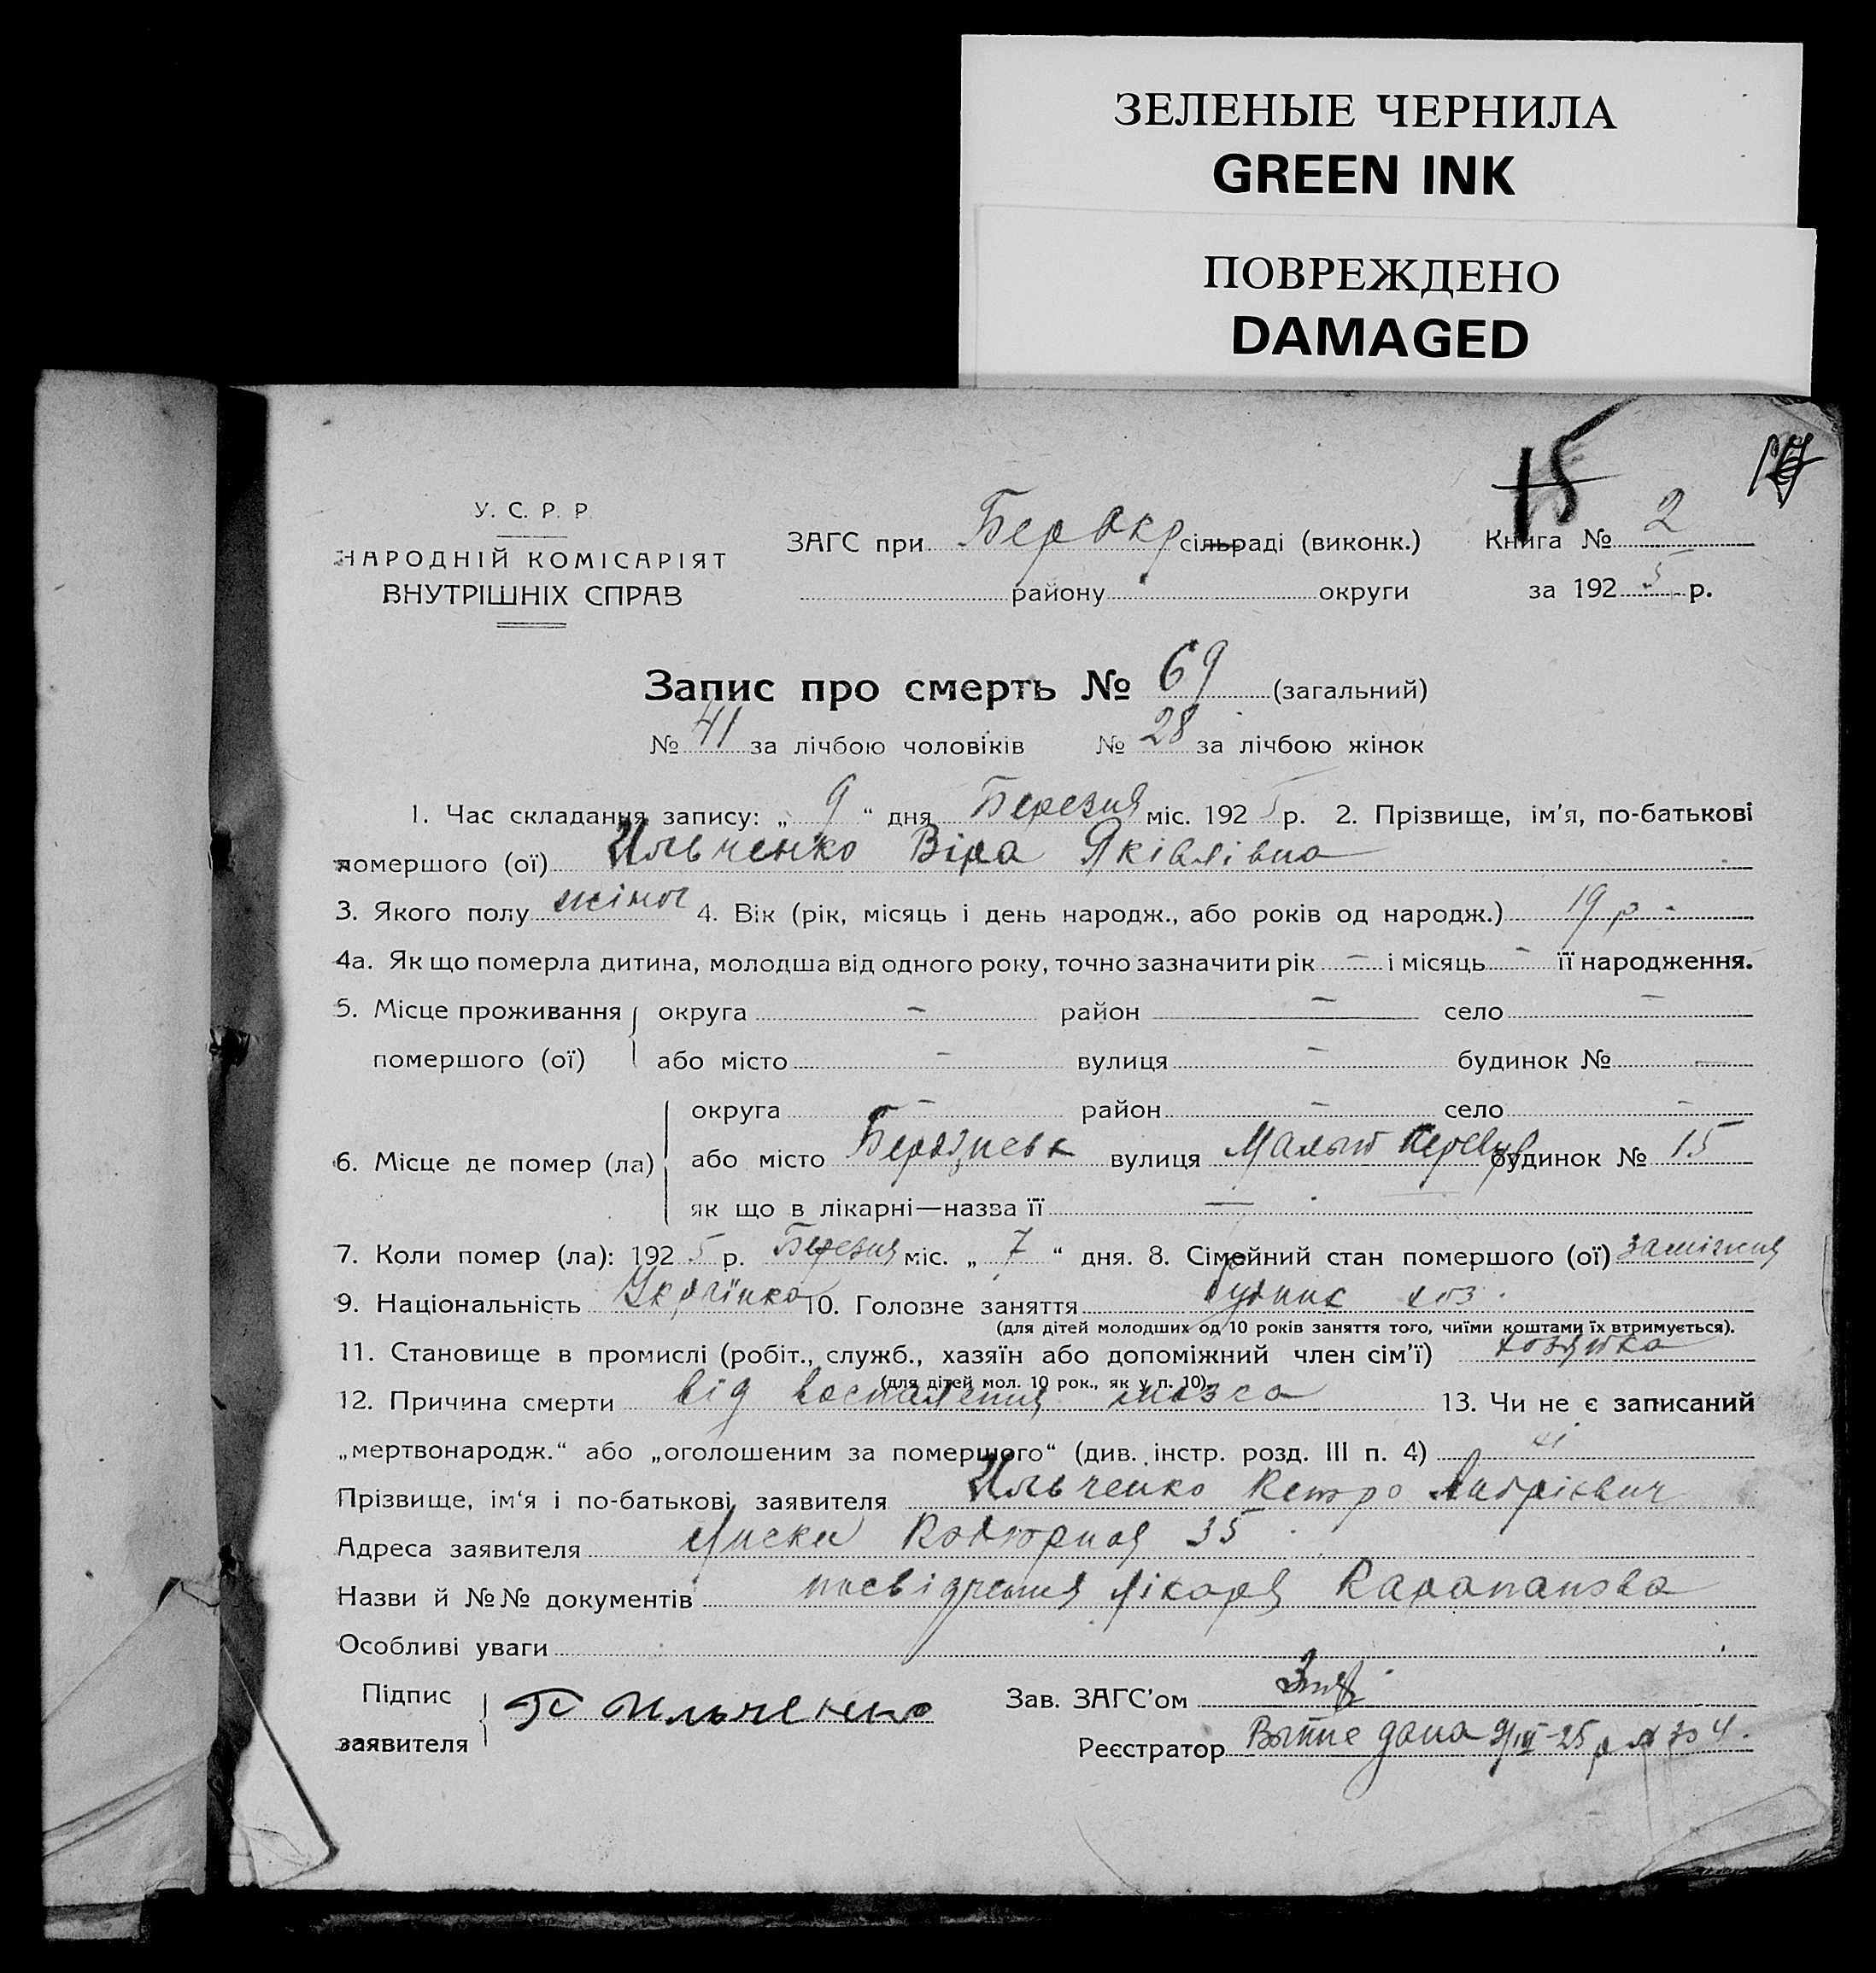 ЗЕЛЕНЫЕ ЧЕРНИЛА
GREEN INK
ПОВРЕЖДЕНО
DAMAGED
15
У. С. Р. Р.
НАРОДНІЙ КОМІСАРІЯТ
ВНУТРІШНІХ СПРАВ
ЗАГС при БерОкр сільраді (виконк.) Книга № 2
району округи за 1925 р.
Запис про смерть № 69 (загальний)
№ 41 за лічбою чоловіків № 28 за лічбою жінок
1. Час складання запису: „ 9 “ дня Березня міс. 1925 р. 2. Прізвище, ім'я, по-батькові
помершого (ої) Ильченко Віра Яківлівна
3. Якого полу жіноч 4. Вік (рік, місяць і день народж., або років од народж.) 19 р.
4а. Як що померла дитина, молодша від одного року, точно зазначити рік — і місяць — її народження.
5. Місце проживання округа — район — село —
помершого (ої) або місто — вулиця — будинок № —
округа — район — село —
6. Місце де помер (ла) або місто вулиця Малый будинок № 15
як що в лікарні—назва її —
7. Коли помер (ла): 1925 р. Березня міс. „ 7 “ дня. 8. Сімейний стан помершого (ої) заміжня
9. Національність Українка 10. Головне заняття хоз.
(для дітей молодших од 10 років заняття того, чиїми коштами їх втримується).
11. Становище в промислі (робіт., служб., хазяїн або допоміжний член сім'ї) хозяйка
(для дітей мол. 10 рок., як у п. 10).
12. Причина смерти від воспалення мозга 13. Чи не є записаний
„мертвонародж.“ або „оголошеним за помершого“ (див. інстр. розд. III п. 4)
Прізвище, ім'я і по-батькові заявителя Ильченко Петро
Адреса заявителя Лиски 35
Назви й №№ документів посвідчення лікаря
Особливі уваги
Підпис П Ильченко Зав. ЗАГС'ом
заявителя Реєстратор дана 9/III-25 р